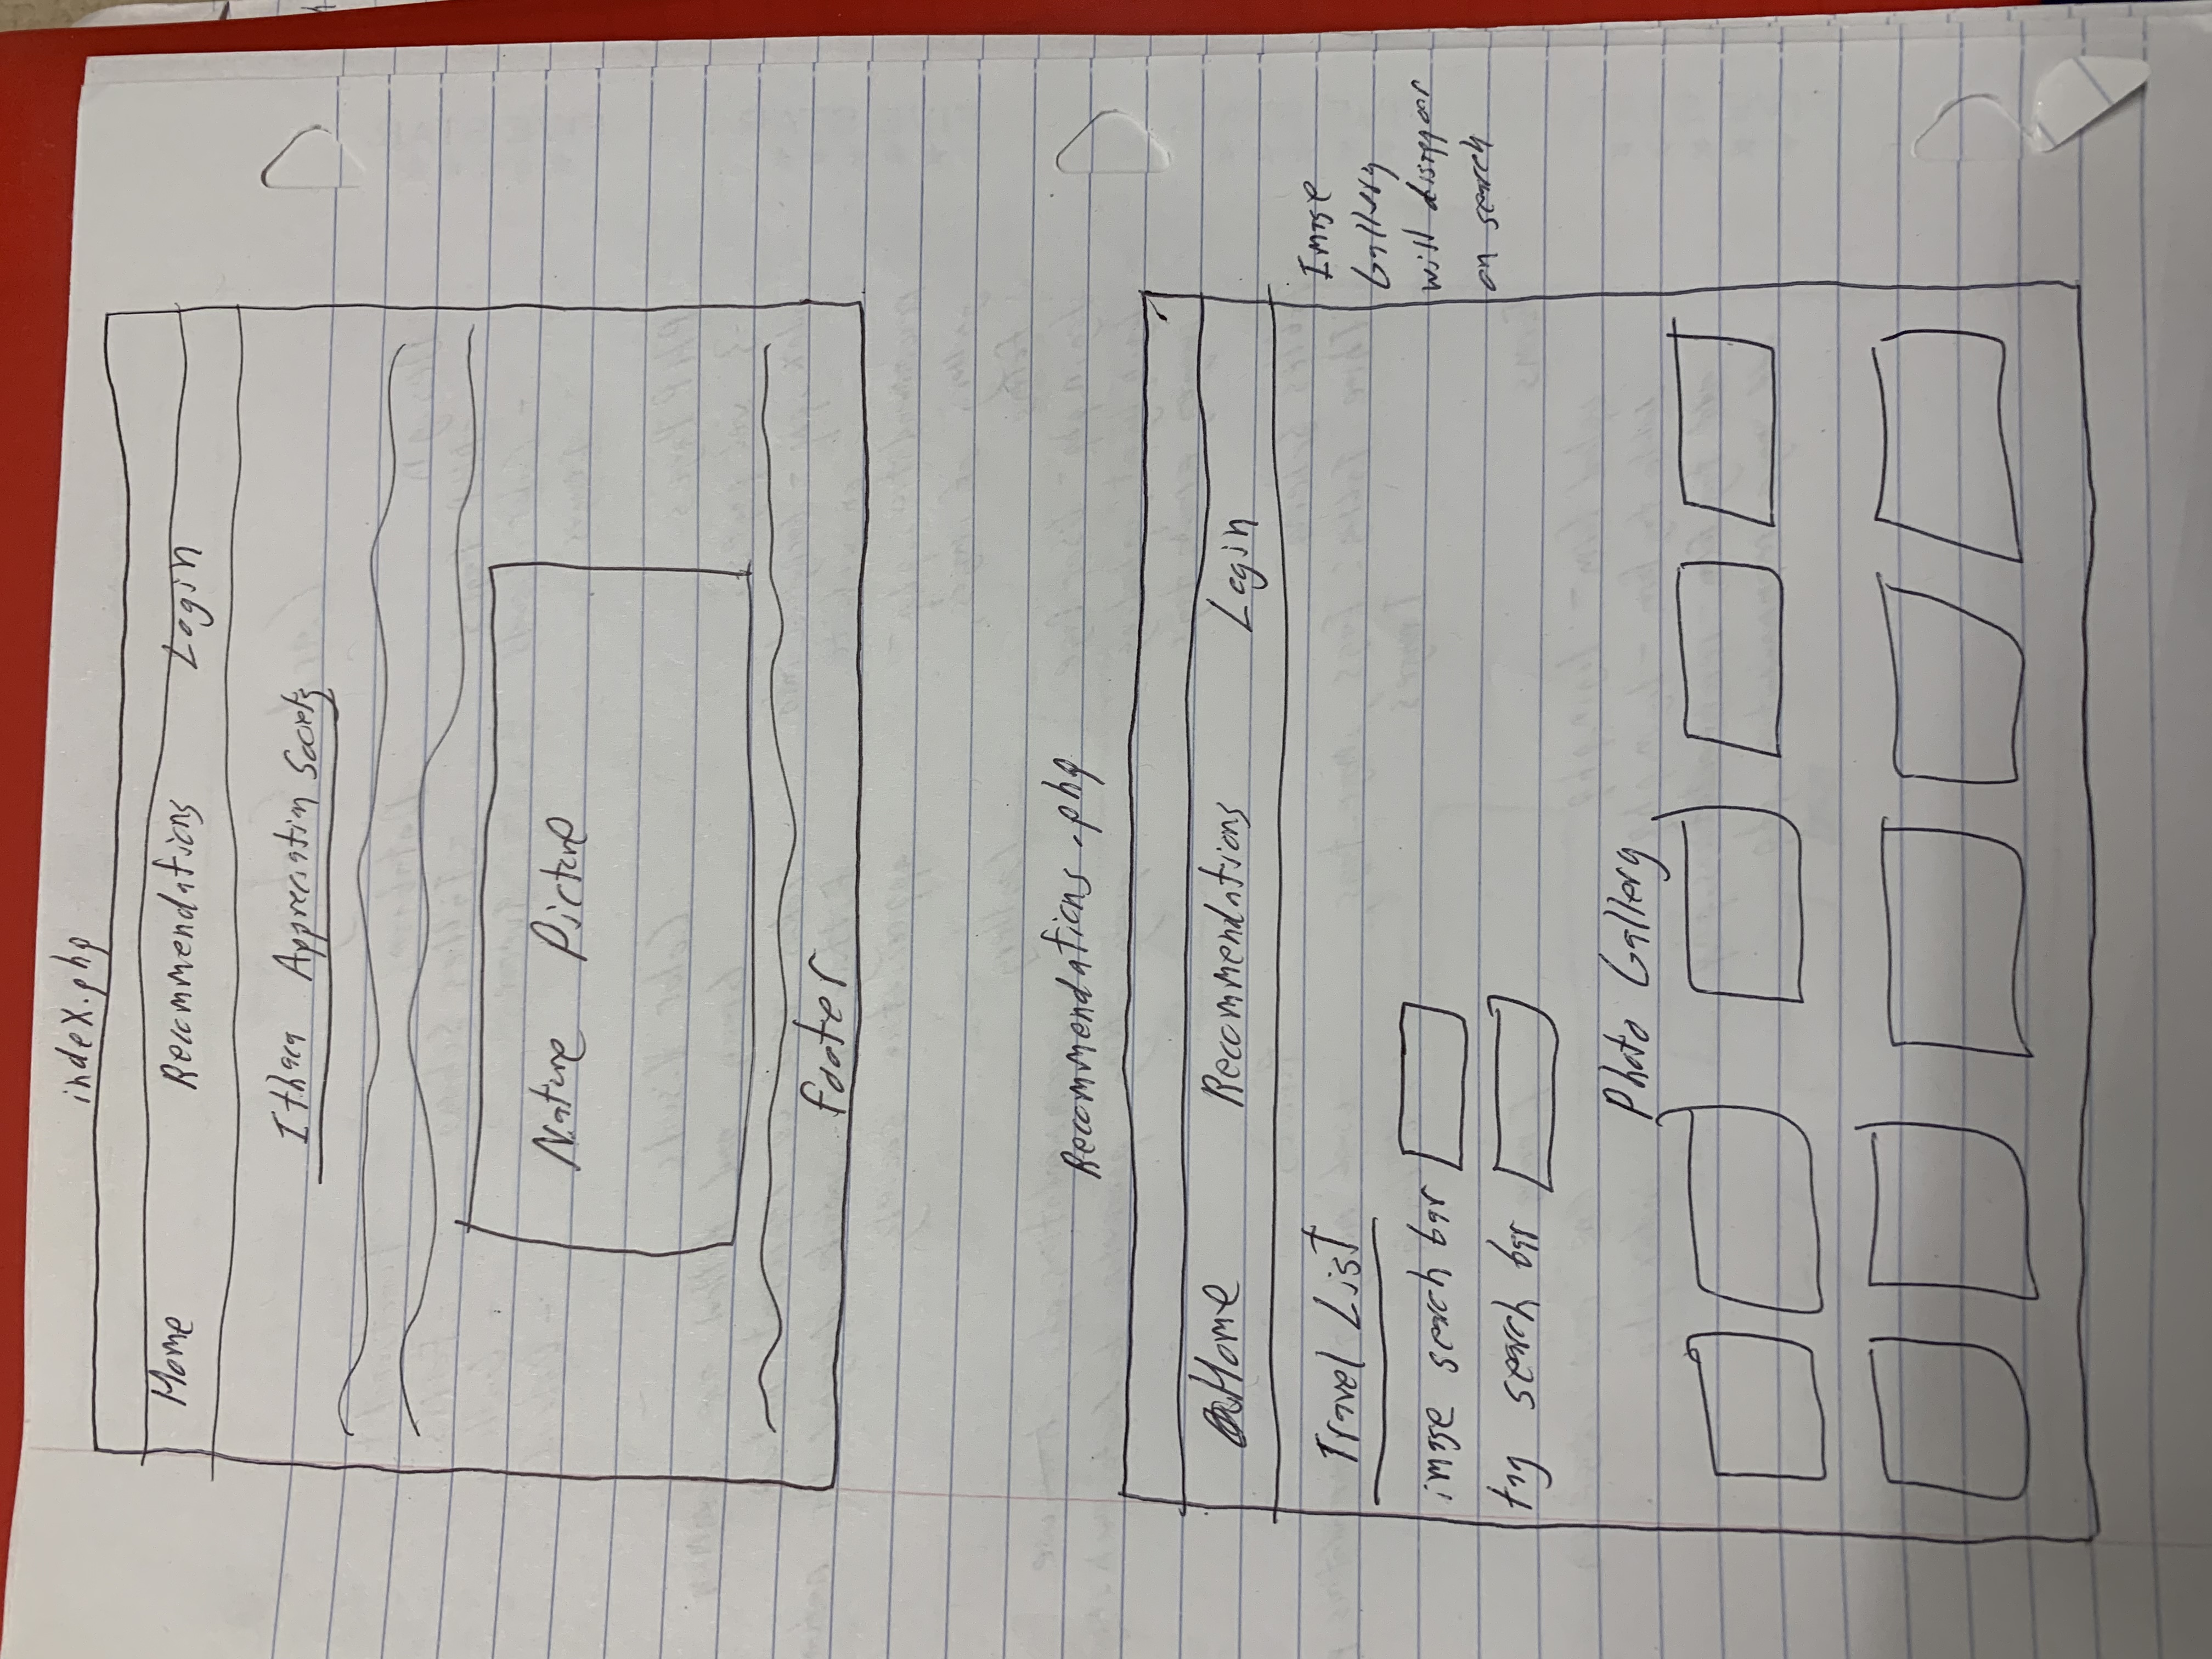 index.php
Home Recommendations Login
Ithaca Appreciation Society
Nature Picture
footer
Recommendations.php
Home Recommendations Login
Travel List
image search bar
tag search bar
Image
Gallery
will disappear
on search
Photo Gallery